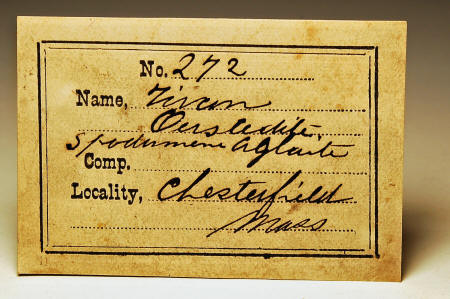 No. 272
Name, Zircon
Oerstedite,
Spodumene Aglaite
Comp.
Locality, Chesterfield
Mass